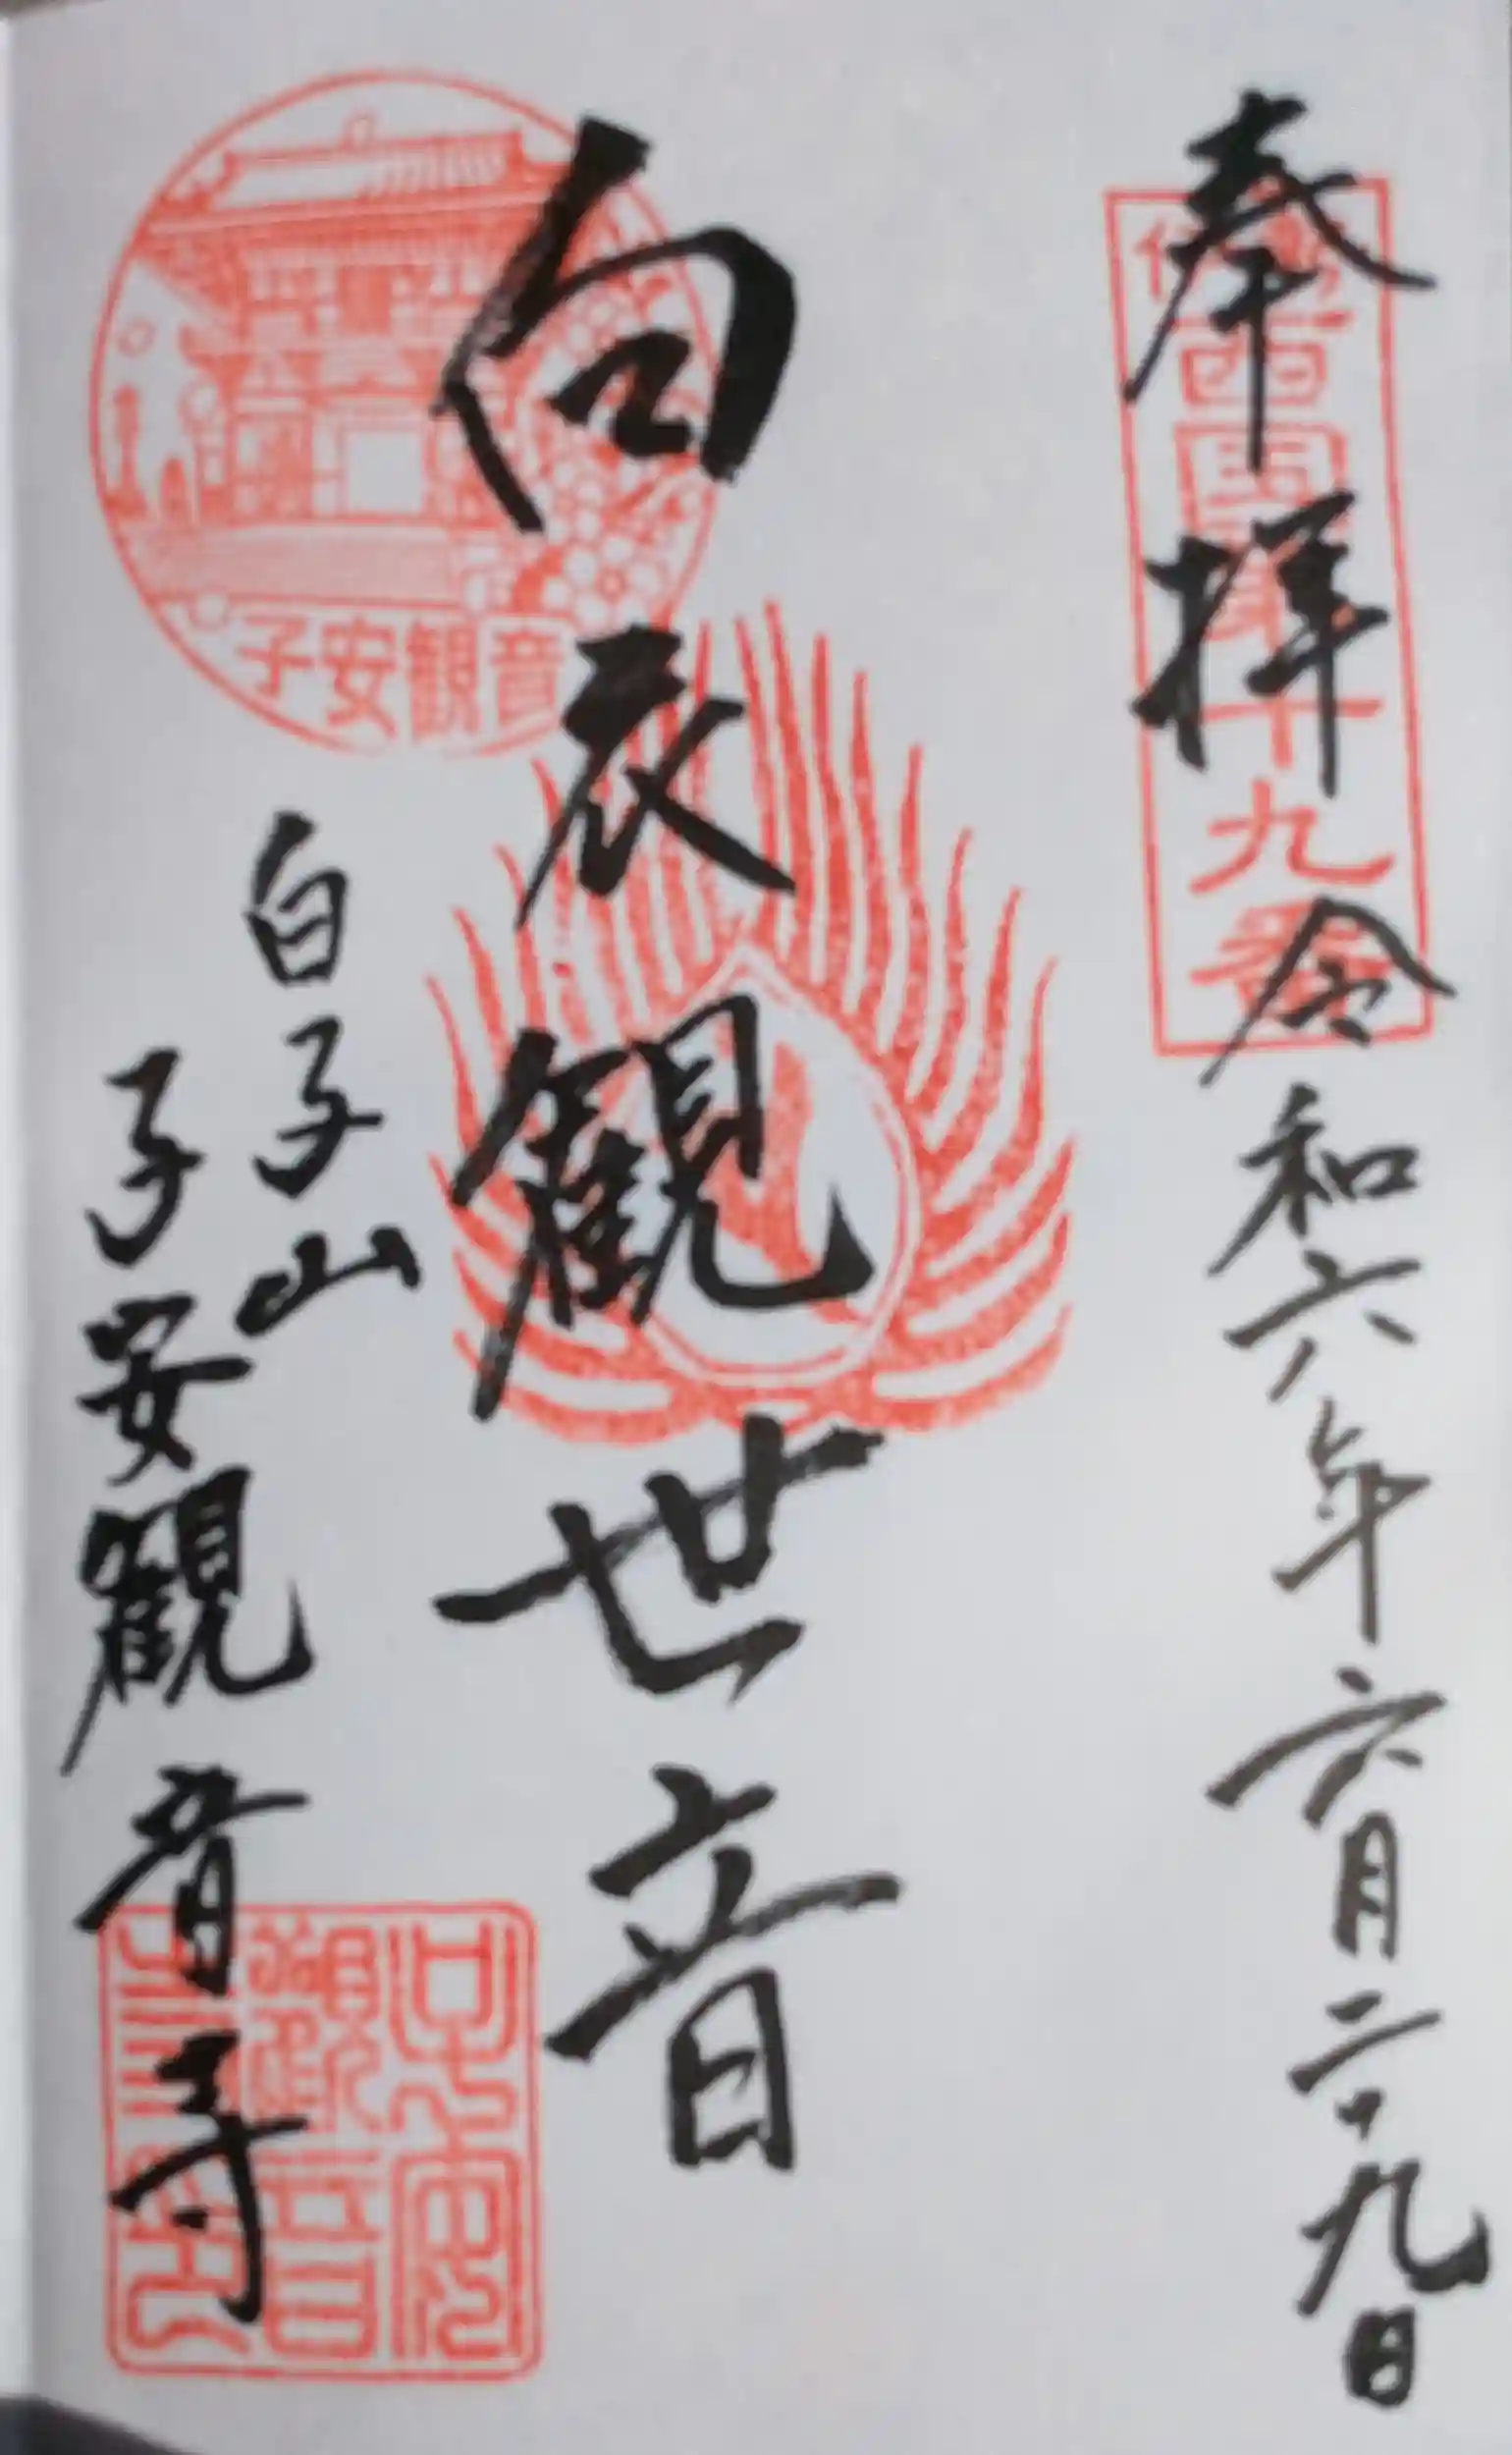 奉拝 令和六年六月二十九日
白衣観世音
白子山
子安観音寺
子安観音